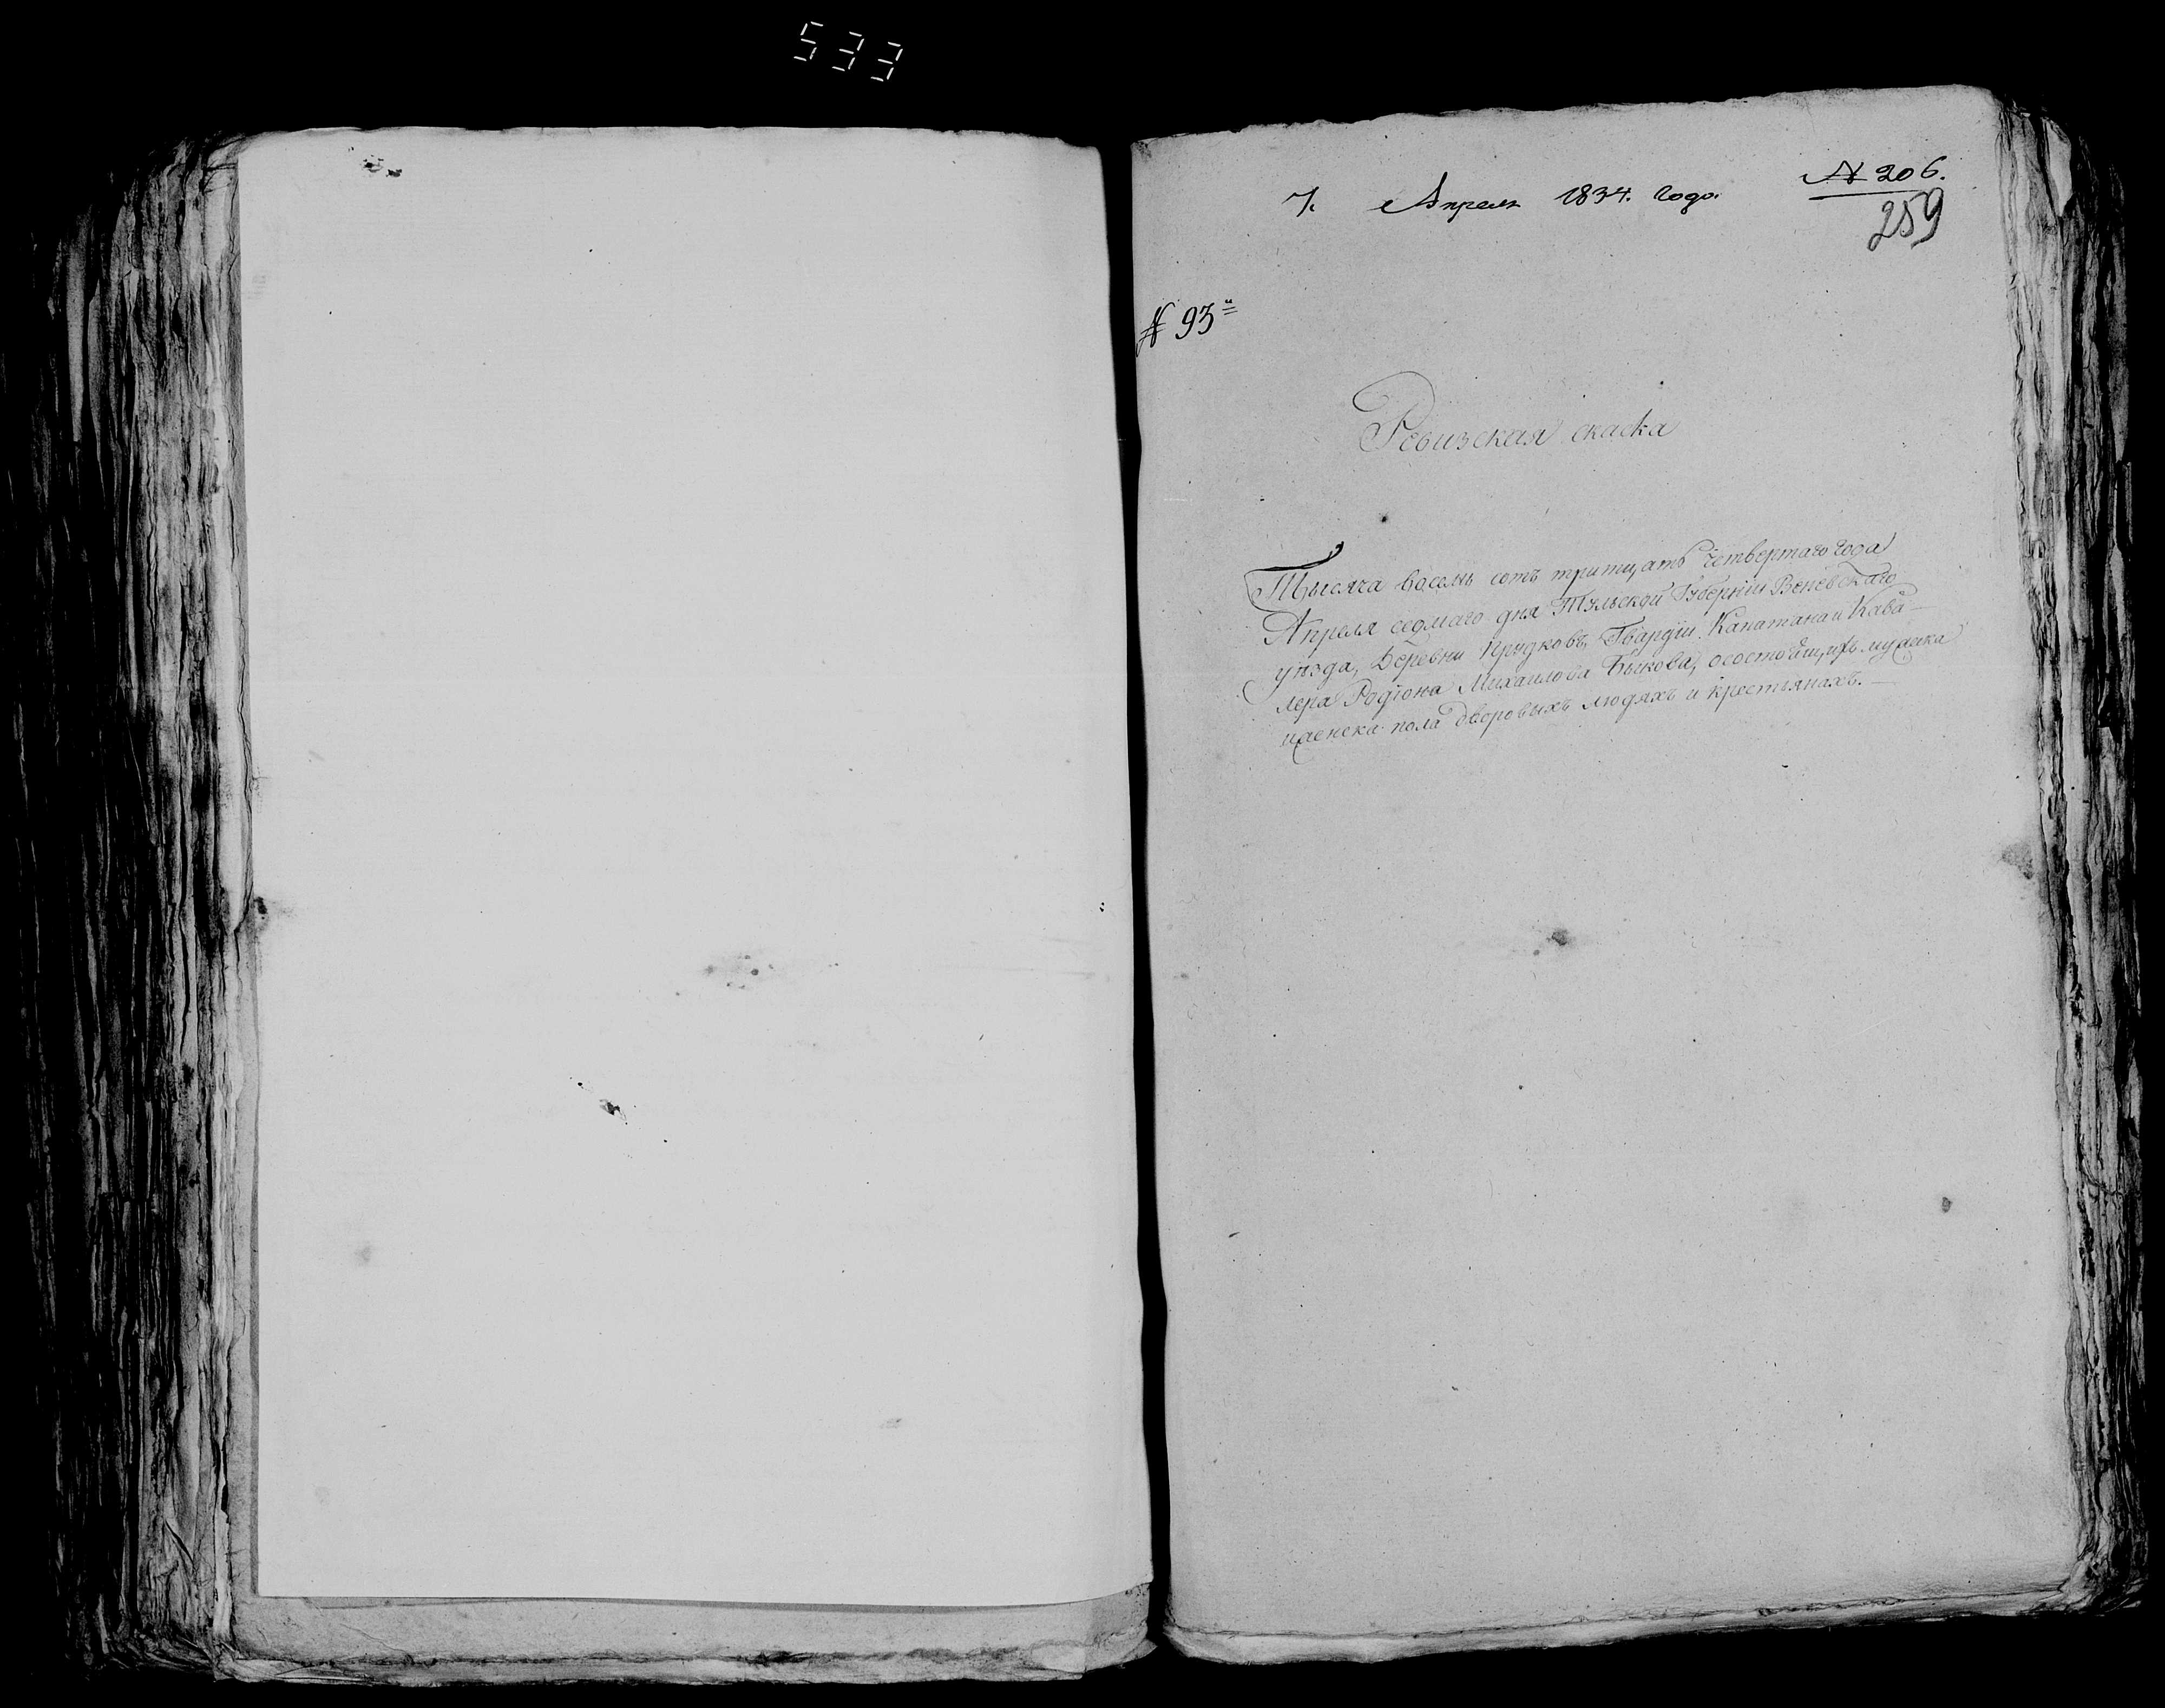 533
7. Апреля 1834. года.
№ 206.
259
№ 93
Ревизская скаска
Тысяча восемь сотъ тритцать четвертаго года
Апреля седмаго дня Тульской Губернїи Веневскаго
уѣзда, Деревни Прудковъ, Гвардїи Капитана и Кава-
лера Родїона Михаилова Быкова, осостоящихъ мужска
иженска пола дворовыхъ людяхъ и крестьянахъ.—